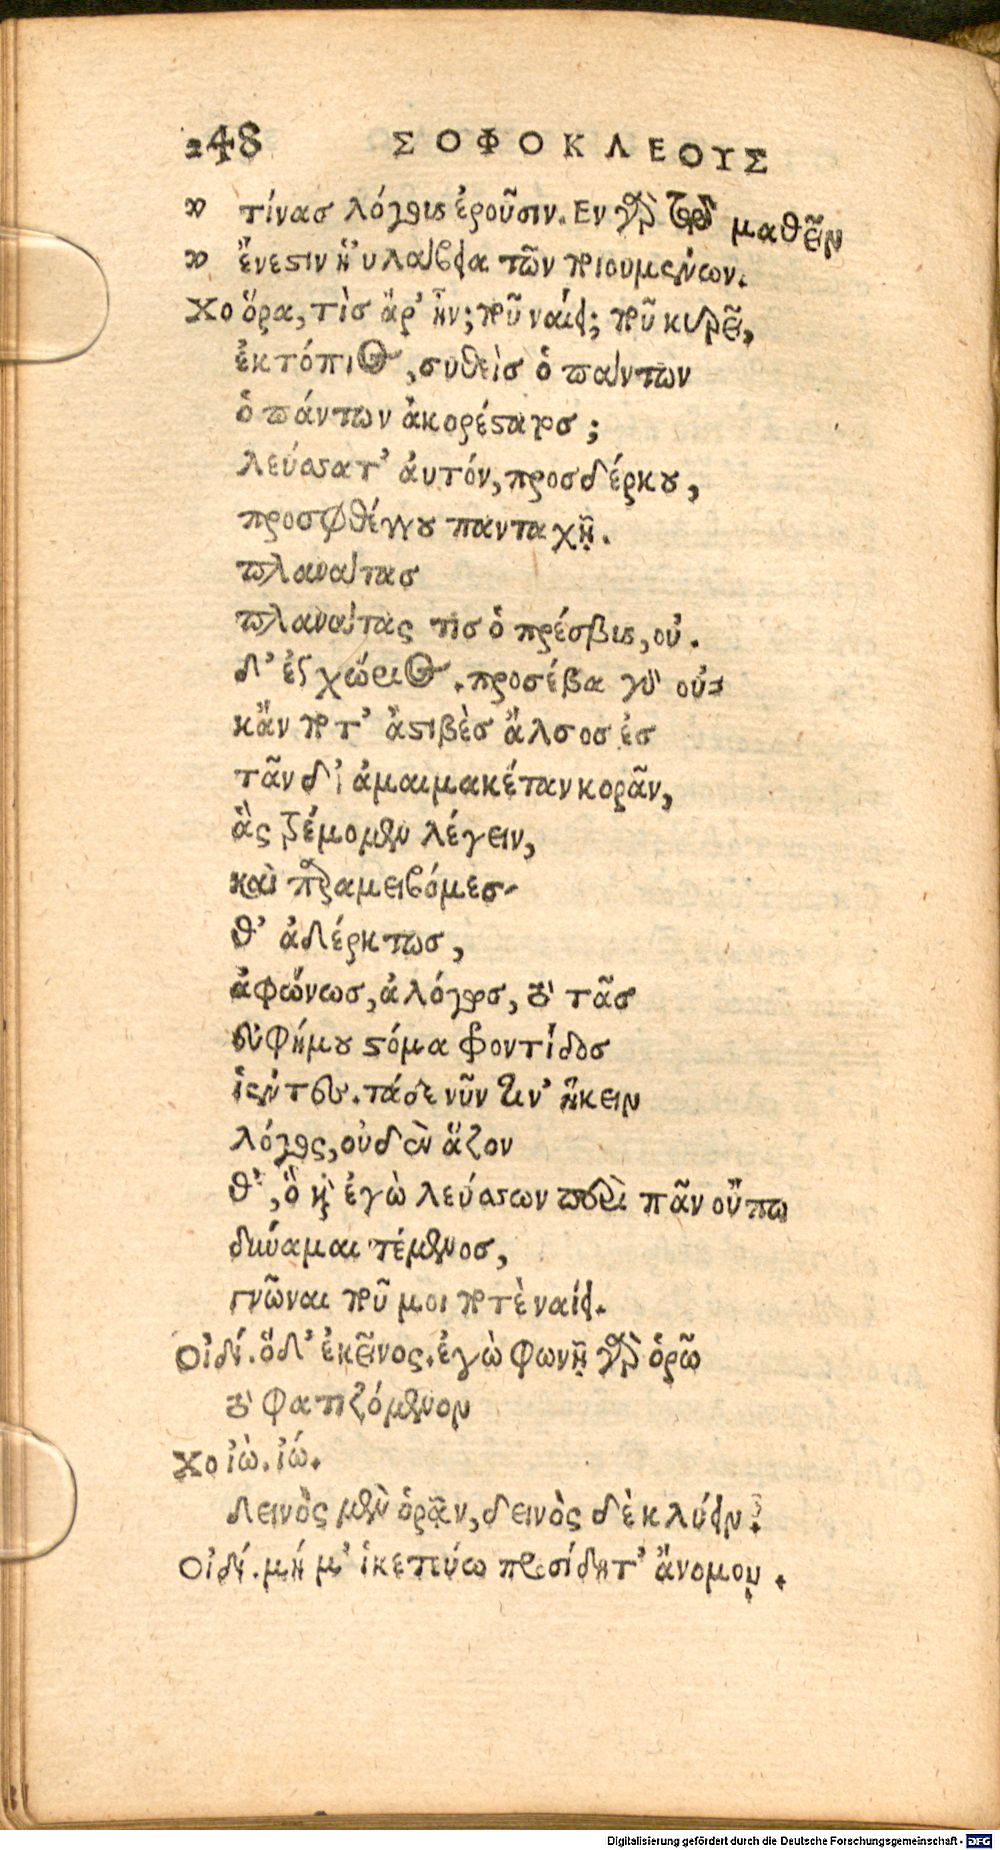 248 ΣΟΦΟΚΛΕΟΥΣ
" τίνασ λόγους ἐροῦσιν. Εν γὰρ τῷ μαθεῖν
" ἔνεστιν ηὐλάβεια τῶν ποιουμένων.
Χο ὅρα, τὶσ ἄρ' ἦν; ποῦ ναίει; ποῦ κυρεῖ,
ἐκτόπιος, συθεὶσ ὁ πάντων
ὁ πάντων ἀκορέστατοσ;
λεύσσατ' ἀυτόν, προσδέρκου,
προσφθέγγου πανταχῆ.
πλανάτασ
πλανάτας τισ ὁ πρέσβυς, οὐ.
δ' ἐγχώριος. προσέβα γὰρ οὐκ
κἄν ποτ' ἀστιβὲσ ἄλσοσ ἐσ
τᾶνδ' ἀμαιμακέταν κορᾶν,
ἃς τρέμομεν λέγειν,
καὶ παραμειβόμεσ-
θ' ἀδέρκτωσ,
ἀφώνωσ, ἀλόγωσ, τὸ τᾶσ
εὐφήμου στόμα φροντίδοσ
ἱέντες. τάδε νῦν τιν' ἥκειν
λόγος, οὐδὲν ἅζον
θ', ὃν ἐγὼ λεύσσων περὶ πᾶν οὔπω
δύναμαι τέμενοσ,
γνῶναι ποῦ μοι ποτὲ ναίει.
Οἰδί. ὅδ' ἐκεῖνος. ἐγὼ φωνῇ γὰρ ὁρῶ
τὸ φατιζόμενον
Χο ἰὼ. ἰώ.
Δεινὸς μὲν ὁρᾷν, δεινὸς δὲ κλύειν.
Οἰδί. μή μ' ἱκετεύω προσίδητ' ἄνομον.
Digitalisierung gefördert durch die Deutsche Forschungsgemeinschaft - DFG